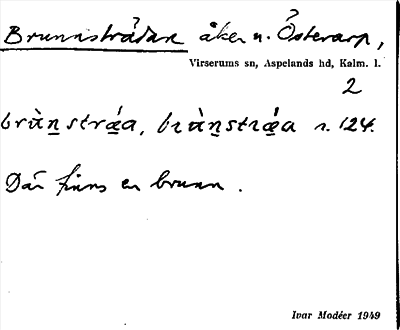 Brunnsträdan åker n. Österarp,
Virserums sn, Aspelands hd, Kalm. l.
2
s. 124.
Där finns en brunn.
Ivar Modéer 1949